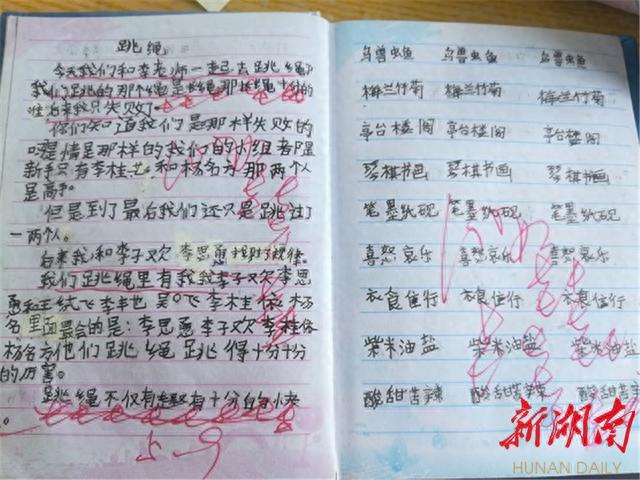 跳绳
今天我们和李老师一起去跳绳
我们跳的那个绳是长绳那长绳十分的
难后来我只失败了
你们知道我们是那样失败的
吗是情是那样的我们的小组都是
新手只有李桂 和杨名方那两个人
是高手。
但是到了最后我们还只是跳过了
一两个。
后来我和李子欢李思愚找到了规律。
我们跳绳里有我我李子欢李思
愚 飞李 飞李桂 杨
名里面最会的是：李思愚李子欢李桂
杨名方他们跳绳跳得十分十分
的厉害。
跳绳不仅有趣有十分的 快
。
鸟兽虫鱼 鸟兽虫鱼 鸟兽虫鱼
梅兰竹菊 梅兰竹菊 梅兰竹菊
亭台楼阁 亭台楼阁 亭台楼阁
琴棋书画 琴棋书画 琴棋书画
笔墨纸砚 笔墨纸砚 笔墨纸砚
喜怒哀乐 喜怒哀乐 喜怒哀乐
衣食住行 衣食住行 衣食住行
柴米油盐 柴米油盐 柴米油盐
酸甜苦辣 酸甜苦辣 酸甜苦辣
新湖南
HUNAN DAILY